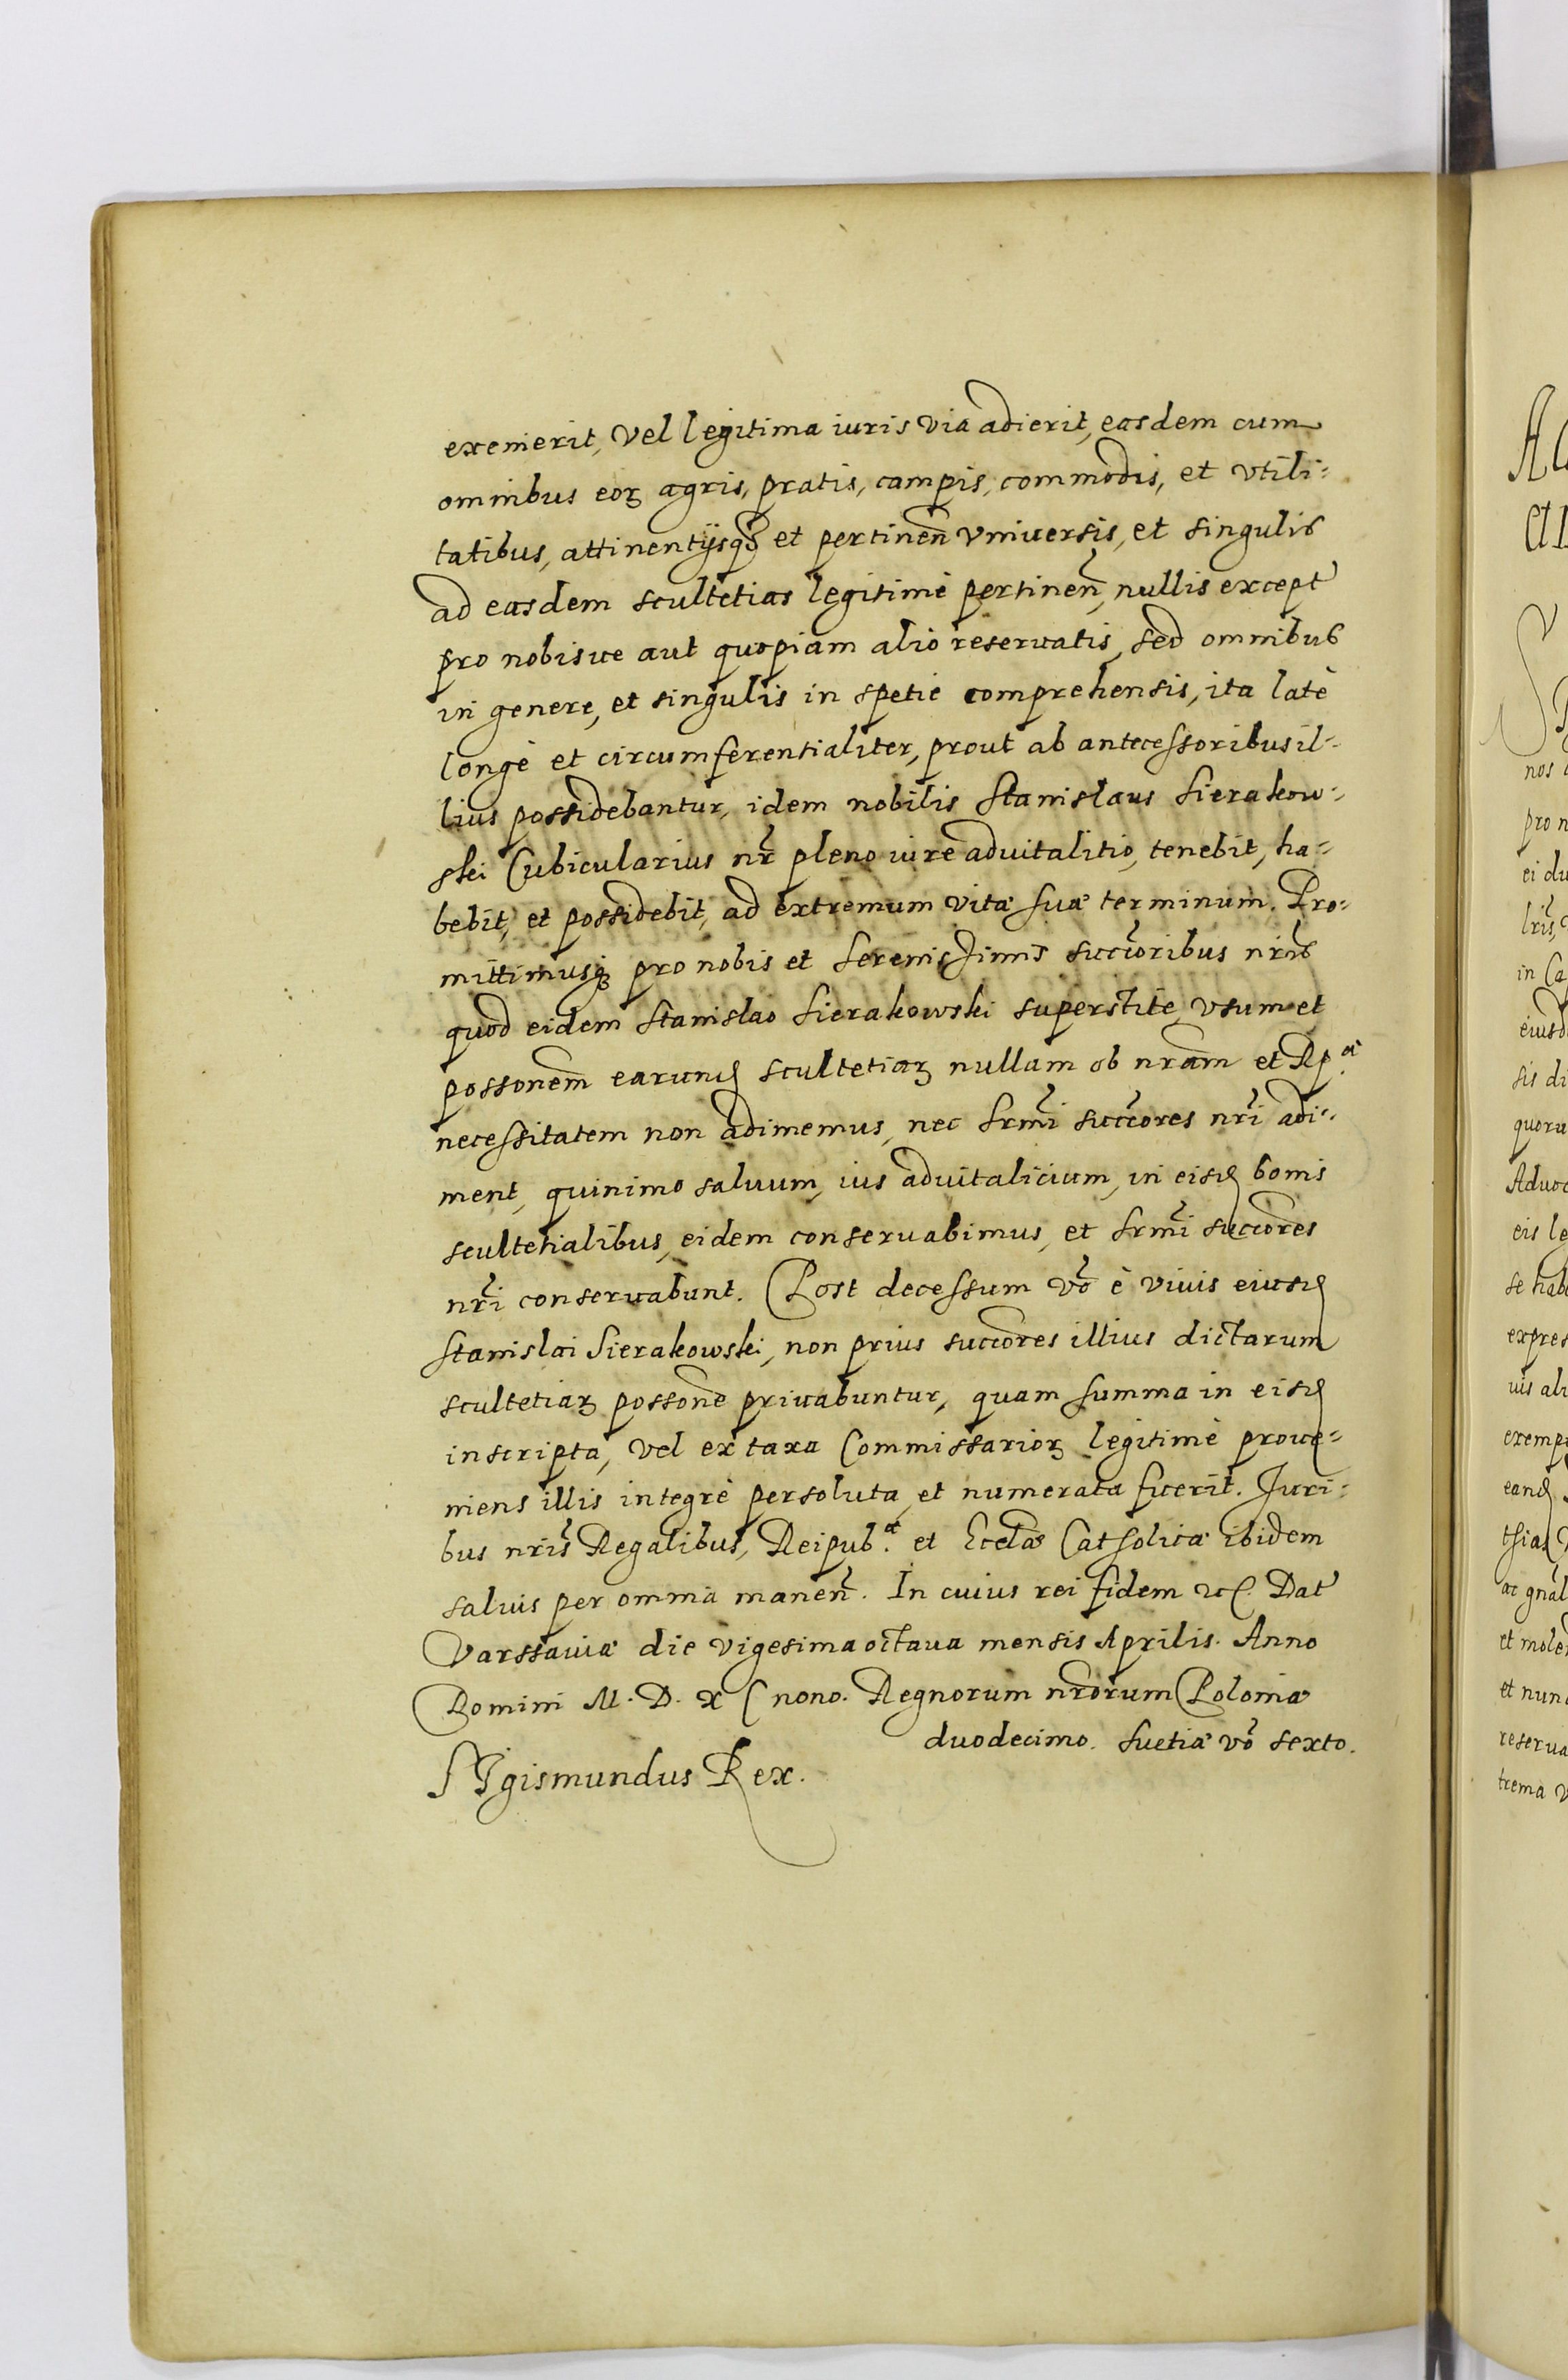 exemerit, vel legitima iuris via adierit, easdem cum
omnibus eorꝫ agris, pratis, campis, commodis, et vtili-
tatibus, attinentijsqꝫ et pertineñ vniuersis, et singulis
ad easdem scultetias legitimè pertineñ, nullis except
pro nobisue aut quopiam alio reseruatis, sed omnibus
in genere, et singulis in spetiè comprehensis, ita latè
longè et circumferentialiter, prout ab antecessoribus il-
lius possidebantur, idem nobilis Stanislaus Sierakow-
ski Cubicularius nr̃ pleno iure aduitalitio, tenebit, ha-
bebit, et possidebit, ad extremum vitæ suæ terminum. Pro-
mittimusqꝫ pro nobis et Serenissimis succõribus nr̃is
quod eidem Stanislao Sierakowski superstite, vsum et
possonem̃ earund scultetiarꝫ nullam ob nram̃ et Rp.æ
necessitatem non adimemus, nec Srm̃i succõres nr̃i adi-
ment, quinimo saluum, ius aduitalicium, in eisd bonis
scultetialibus, eidem conseruabimus, et Srm̃i succõres
nr̃i conseruabunt. Post decessum võ è viuis eiusd
Stanislai Sierakowski, non prius succõres illius dictarum
scultetiarꝫ possonẽ priuabuntur, quam summa in eisd
inscripta, vel ex taxa Commissariorꝫ legitimè proue-
niens illis integrè persoluta, et numerata fuerit. Juri-
bus nr̃is Regalibus, Reipub.æ et Eccl̃æ Catholicæ ibidem
saluis per omnia maneñ. In cuius rei fidem etc. Dat
Varssauiæ die vigesima octaua mensis Aprilis. Anno
Domini M. D. X C nono. Regnorum nrõrum Poloniæ
duodecimo. Suetiæ võ sexto.
Sigismundus Rex.